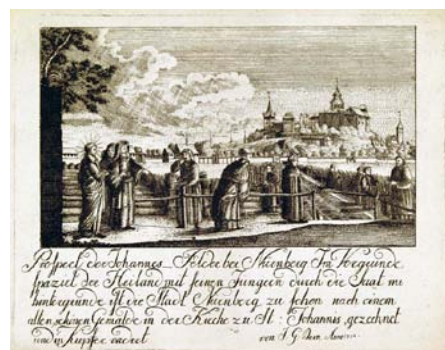 Prospect der Johannes Felder bei Nürnberg Im Vorgrunde
spaziet der Heiland mit seinen Jüngen durch die Saat im
hintergrunde ist die Stadt Nürnberg zu sehen nach einem
alten schönen Gemälde in der Kirche zu St: Johannis, gezeichnet
und in kupfer
von